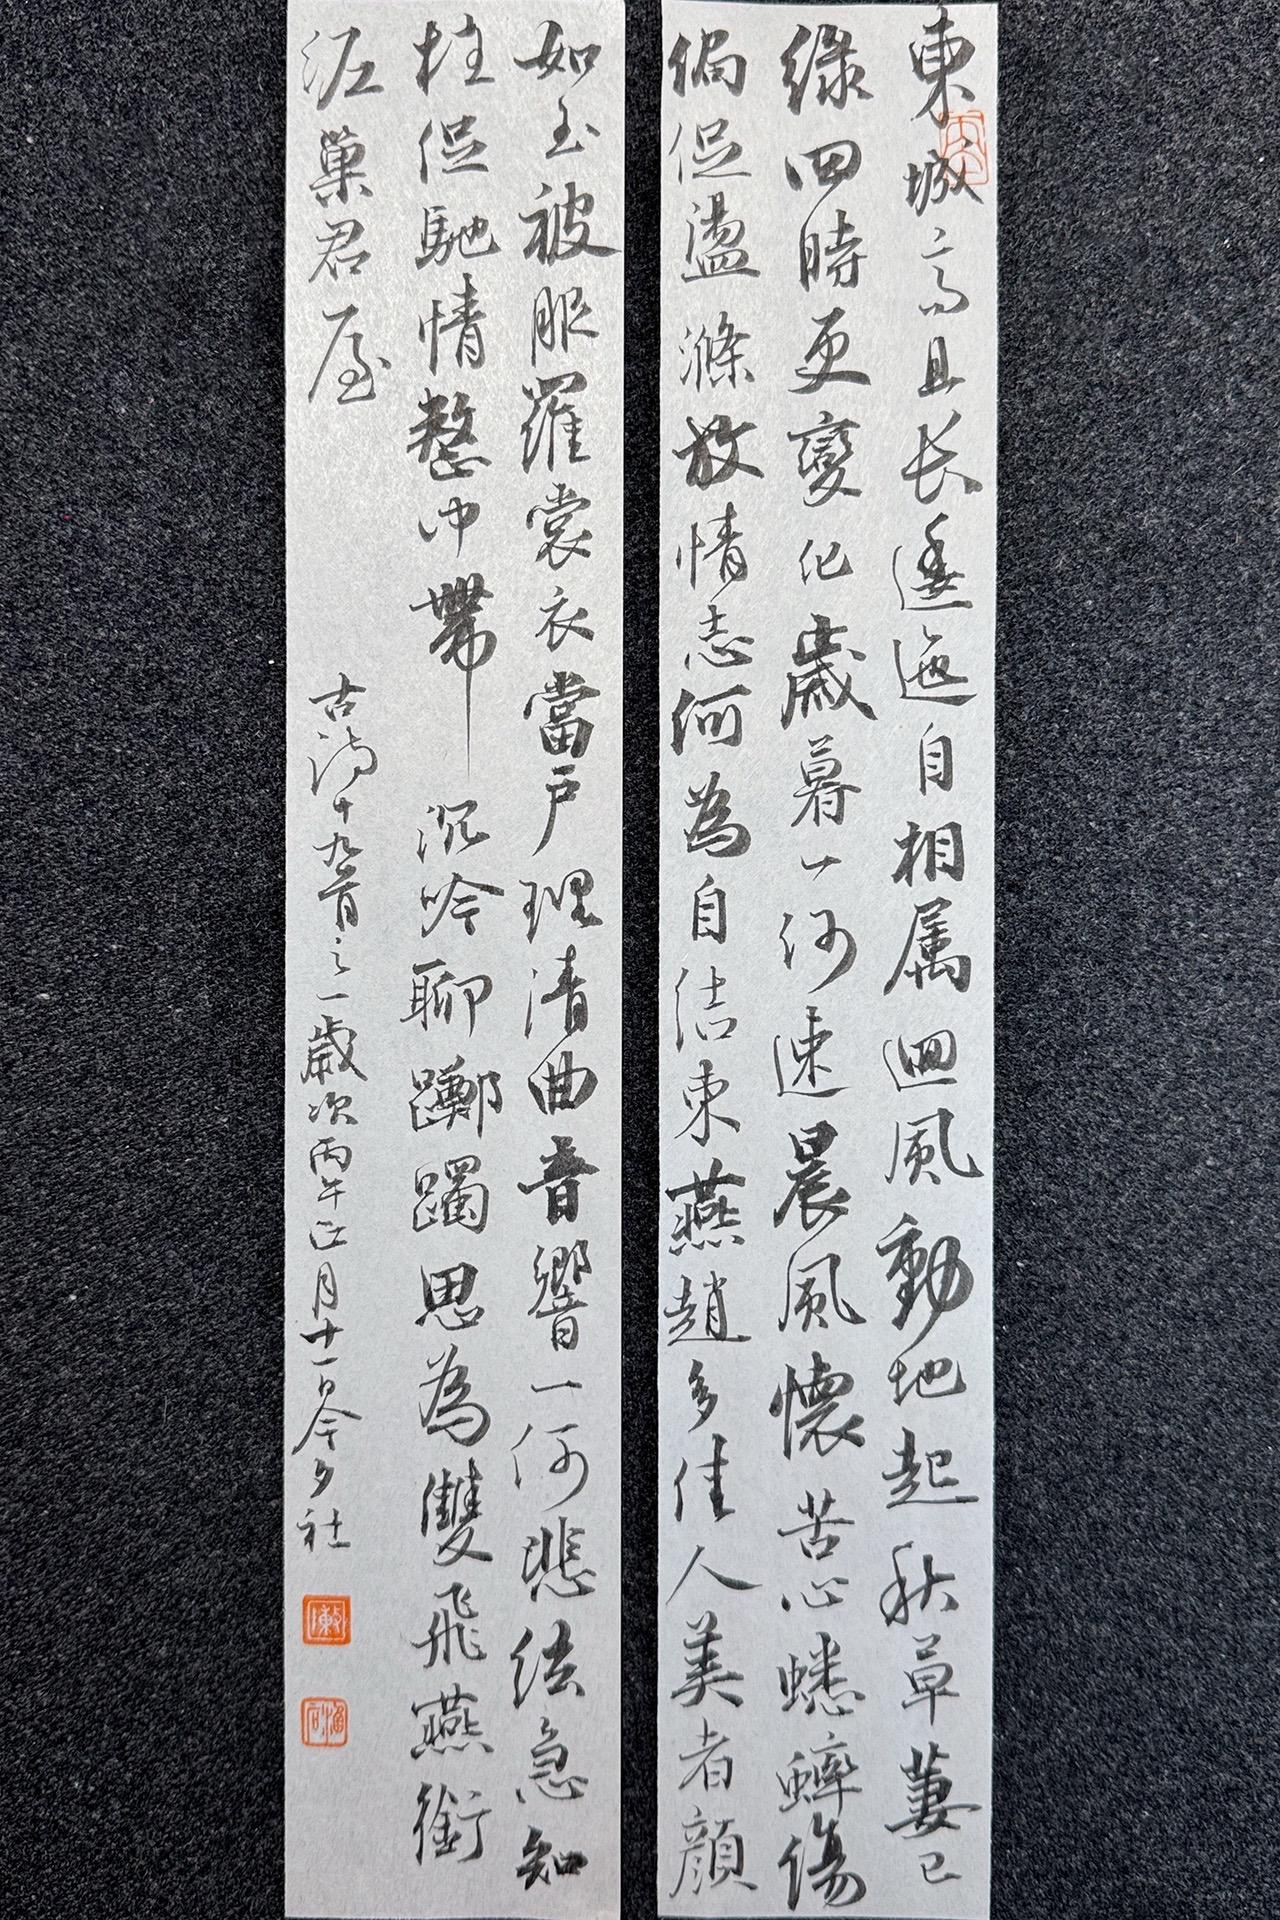 東城高且长逶迤自相属迴風動地起秋草萋已
緑四時更變化歲暮一何速晨風懷苦心蟋蟀傷
偈促盪滌放情志何為自结束燕趙多佳人美者顔
如玉被服羅裳衣當户理清曲音響一何悲弦急知
柱促馳情整巾帶沉吟聊躑躅思為雙飛燕銜
泥巢君屋
古詩十九首之一歲次丙午正月十一日今夕社